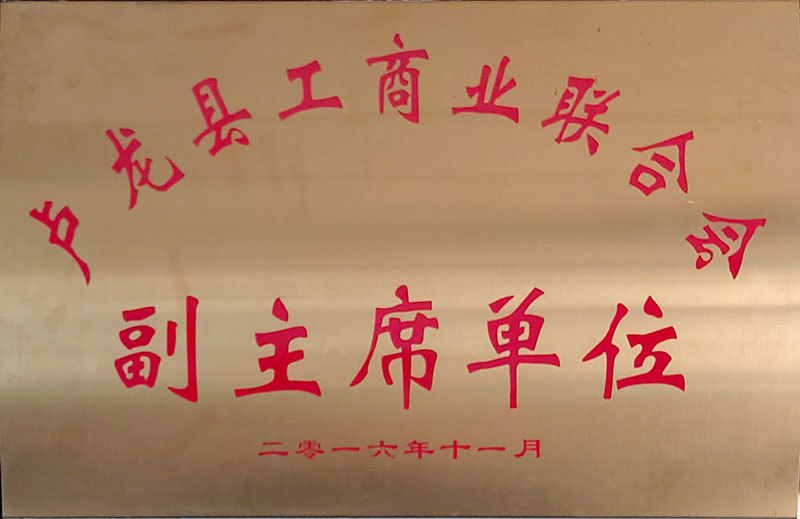 卢龙县工商业联合会
副主席单位
二零一六年十一月